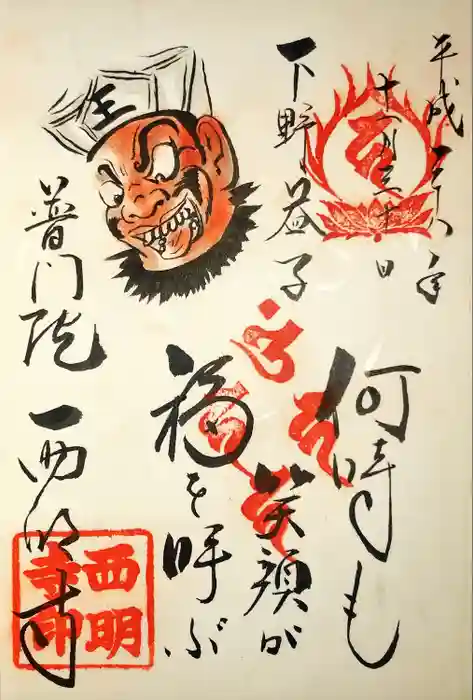 平成 年
十一月三十日
下野 益子
何時も
笑顔が
福を呼ぶ
王
普門院 西明寺
西明
寺印